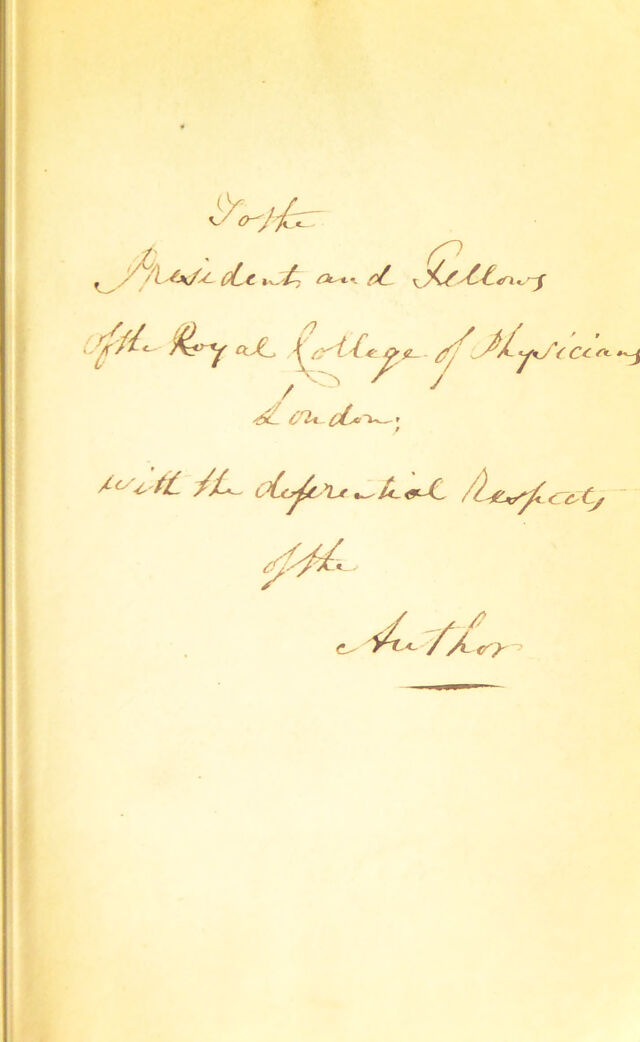 To the
President and Fellows
of the Royal College of Physicians
London;
with the deferential Respects
of the
Author